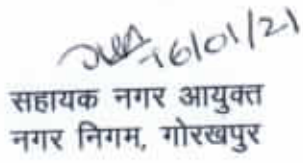 16/01/21
सहायक नगर आयुक्त
नगर निगम, गोरखपुर